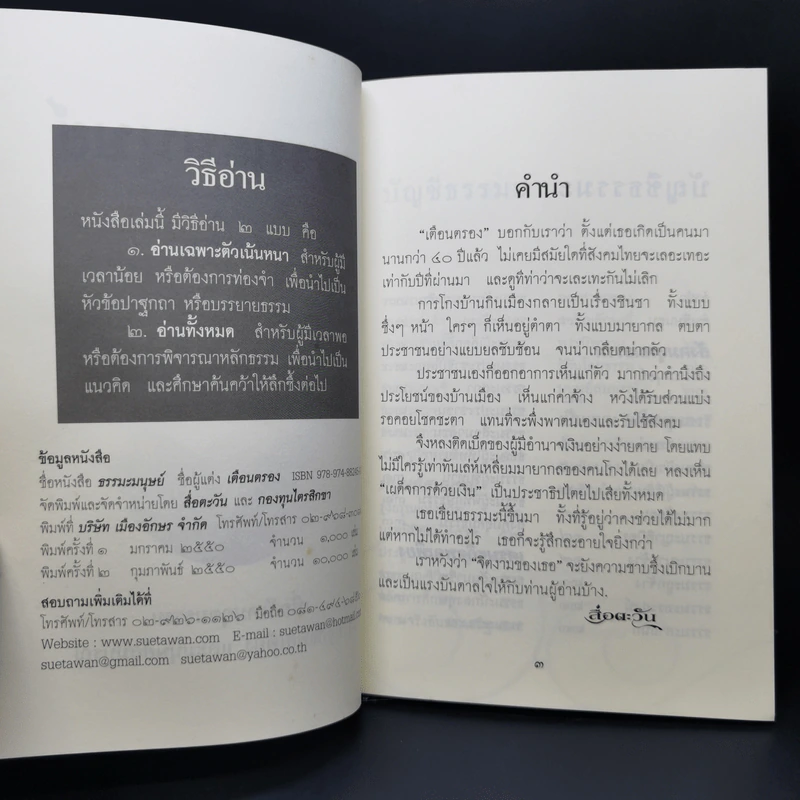 วิธีอ่าน
หนังสือเล่มนี้ มีวิธีอ่าน ๒ แบบ คือ
๑. อ่านเฉพาะตัวเน้นหนา สำหรับผู้มี
เวลาน้อย หรือต้องการท่องจำ เพื่อนำไปเป็น
หัวข้อปาฐกถา หรือบรรยายธรรม
๒. อ่านทั้งหมด สำหรับผู้มีเวลาพอ
หรือต้องการพิจารณาหลักธรรม เพื่อนำไปเป็น
แนวคิด และศึกษาค้นคว้าให้ลึกซึ้งต่อไป
ข้อมูลหนังสือ
ชื่อหนังสือ ธรรมะมนุษย์ ชื่อผู้แต่ง เตือนตรอง ISBN
จัดพิมพ์และจัดจำหน่ายโดย สื่อตะวัน และ กองทุนไตรสิกขา
พิมพ์ที่ บริษัท เมืองอักษร จำกัด โทรศัพท์/โทรสาร
พิมพ์ครั้งที่ ๑ มกราคม ๒๕๕๐ จำนวน ๑,๐๐๐ เล่ม
พิมพ์ครั้งที่ ๒ กุมภาพันธ์ ๒๕๕๐ จำนวน ๑๐,๐๐๐ เล่ม
สอบถามเพิ่มเติมได้ที่
โทรศัพท์/โทรสาร ๐๒-๙๒๖-๑๑๒๖ มือถือ
Website : www.suetawan.com E-mail : suetawan@hotmail
suetawan@gmail.com suetawan@yahoo.co.th
คำนำ
“เตือนตรอง” บอกกับเราว่า ตั้งแต่เธอเกิดเป็นคนมา
นานกว่า ๔๐ ปีแล้ว ไม่เคยมีสมัยใดที่สังคมไทยจะเลอะเทอะ
เท่ากับปีที่ผ่านมา และดูทีท่าว่าจะเละเทะกันไม่เลิก
การโกงบ้านกินเมืองกลายเป็นเรื่องชินชา ทั้งแบบ
ซึ่งๆ หน้า ใครๆ ก็เห็นอยู่ตำตา ทั้งแบบมายากล ตบตา
ประชาชนอย่างแยบยลซับซ้อน จนน่าเกลียดน่ากลัว
ประชาชนเองก็ออกอาการเห็นแก่ตัว มากกว่าคำนึงถึง
ประโยชน์ของบ้านเมือง เห็นแก่ค่าจ้าง หวังได้รับส่วนแบ่ง
รอคอยโชคชะตา แทนที่จะพึ่งพาตนเองและรับใช้สังคม
จึงหลงติดเบ็ดของผู้มีอำนาจเงินอย่างง่ายดาย โดยแทบ
ไม่มีใครรู้เท่าทันเล่ห์เหลี่ยมมายากลของคนโกงได้เลย หลงเห็น
“เผด็จการด้วยเงิน” เป็นประชาธิปไตยไปเสียทั้งหมด
เธอเขียนธรรมะนี้ขึ้นมา ทั้งที่รู้อยู่ว่าคงช่วยได้ไม่มาก
แต่หากไม่ได้ทำอะไร เธอก็จะรู้สึกละอายใจยิ่งกว่า
เราหวังว่า “จิตงามของเธอ” จะยังความซาบซึ้งเบิกบาน
และเป็นแรงบันดาลใจให้กับท่านผู้อ่านบ้าง.
สื่อตะวัน
๓